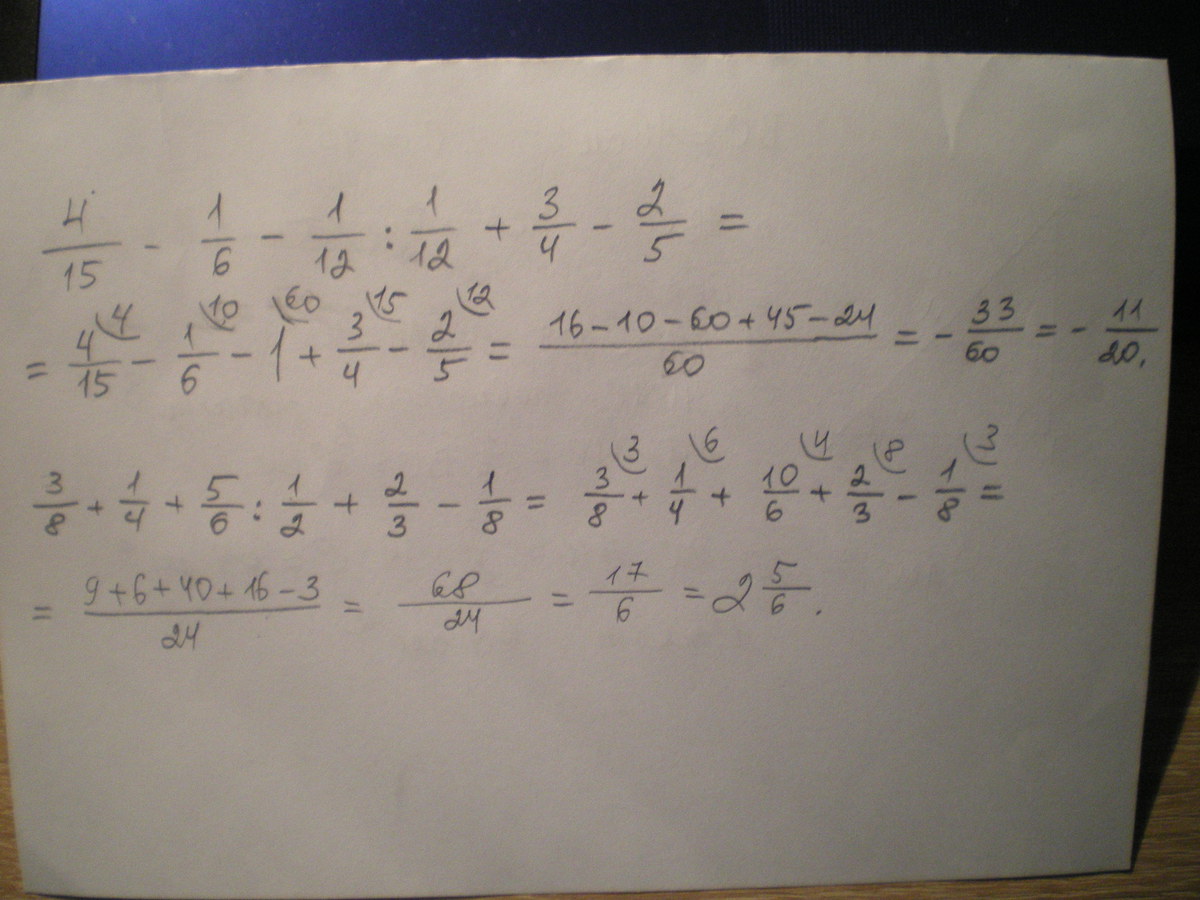 4/15 - 1/6 - 1/12 : 1/12 + 3/4 - 2/5 =
= 4/15 \4 - 1/6 \10 - 1 \60 + 3/4 \15 - 2/5 \12 = (16-10-60+45-24)/60 = - 33/60 = - 11/20.
3/8 + 1/4 + 5/6 : 1/2 + 2/3 - 1/8 = 3/8 \3 + 1/4 \6 + 10/6 \4 + 2/3 \8 - 1/8 \3 =
= (9+6+40+16-3)/24 = 68/24 = 17/6 = 2 5/6.